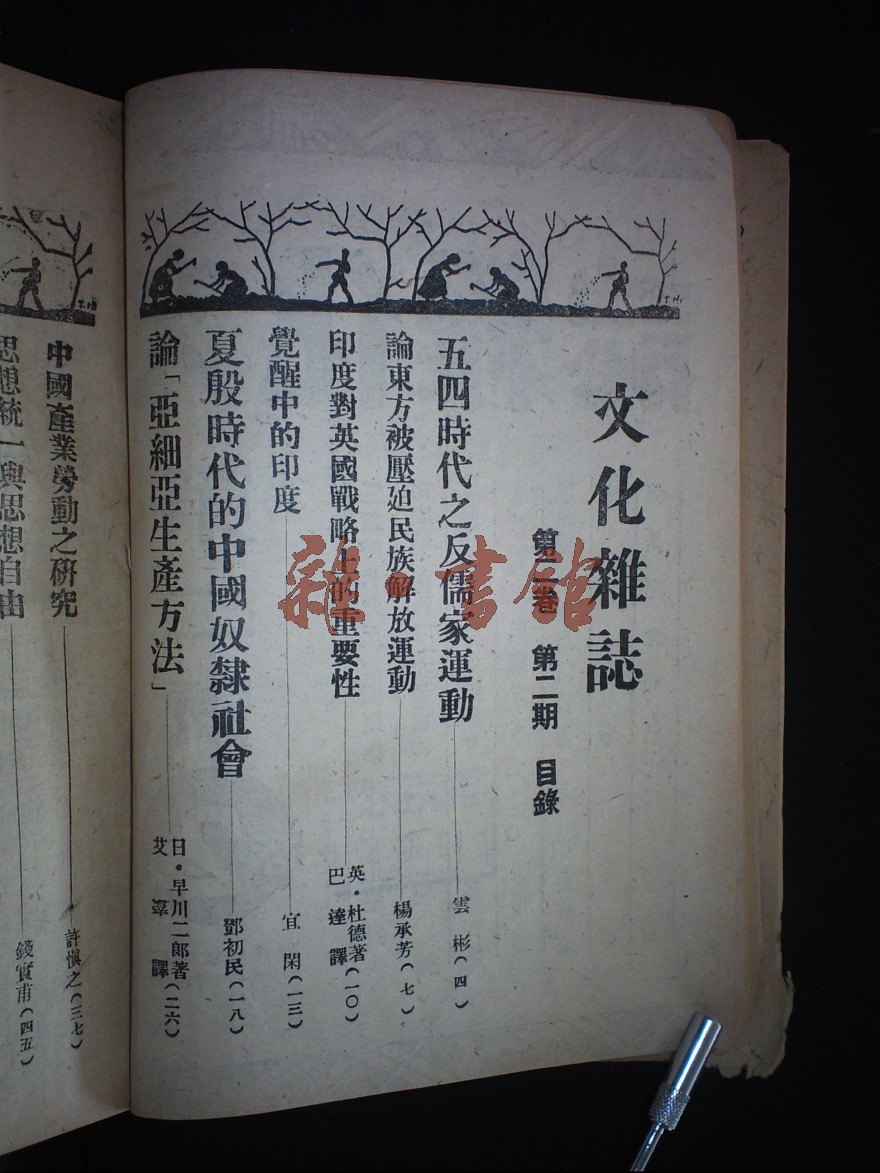 文化雜誌
第二卷 第二期 目錄
五四時代之反儒家運動 雲彬(四)
論東方被壓迫民族解放運動 楊承芳(七)
印度對英國戰略上的重要性 英·杜德著 巴達譯(一〇)
覺醒中的印度 宜閑(一三)
夏殷時代的中國奴隸社會 鄧初民(一八)
論「亞細亞生產方法」 日·早川二郎著 艾 譯(二六)
中國產業勞動之研究 許愼之(三七)
思想統一與思想自由 錢實甫(四五)
雜·書館
T.H.